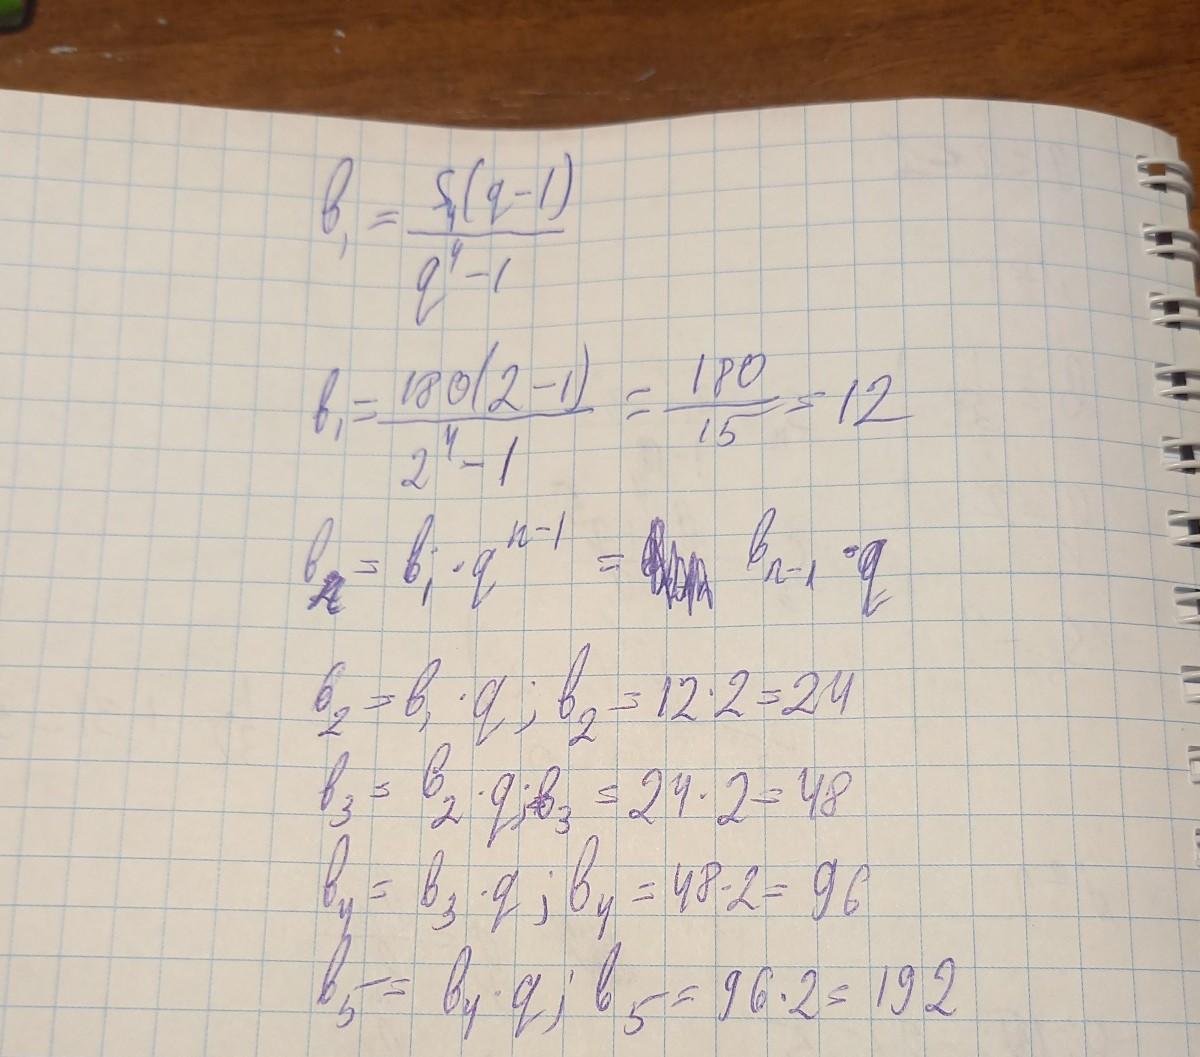 в₁ = S₄(q-1) / q⁴-1
в₁ = 180(2-1) / 2⁴-1 = 180 / 15 = 12
вₙ = в₁ · qⁿ⁻¹ = вₙ₋₁ · q
в₂ = в₁ · q; в₂ = 12 · 2 = 24
в₃ = в₂ · q; в₃ = 24 · 2 = 48
в₄ = в₃ · q; в₄ = 48 · 2 = 96
в₅ = в₄ · q; в₅ = 96 · 2 = 192